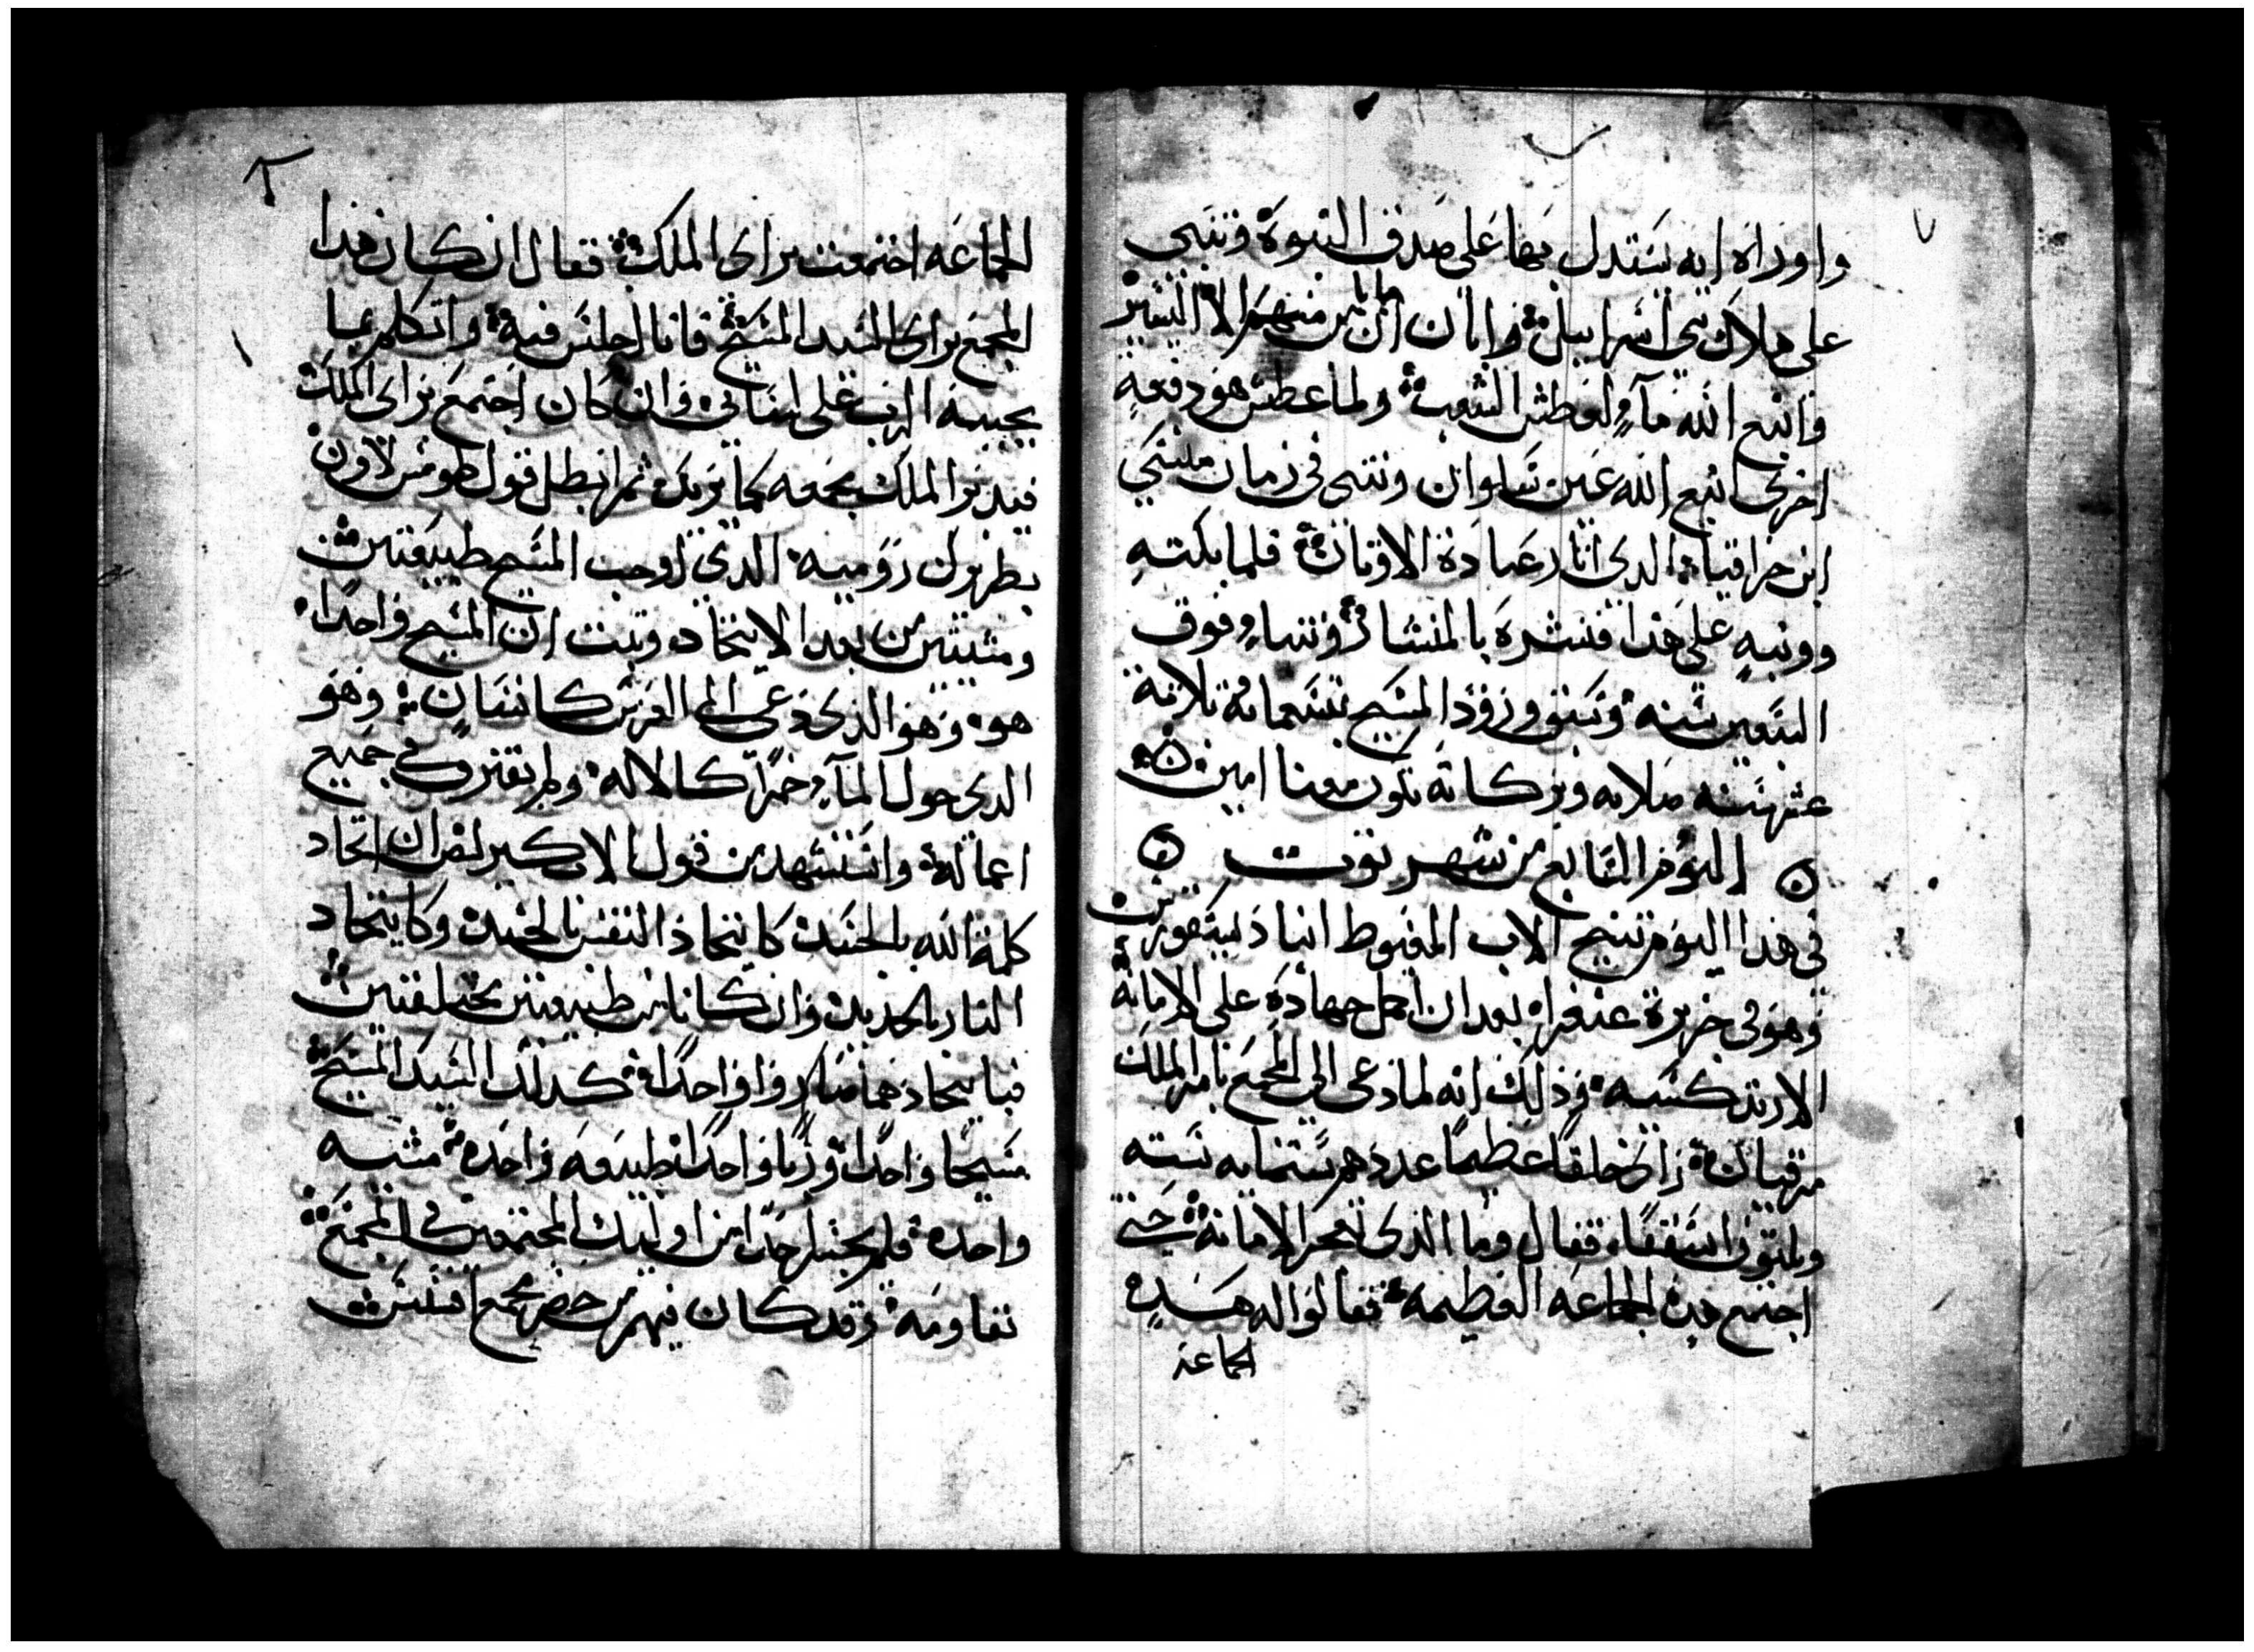 واوراه ايه يستدل بها على صدق النبوة وتنبى
على هلاك بني اسراييل وابان ان ما يابس منهم الا اليسير
وانبع الله مآء لعطش الشعب ولما عطش هو دفعة
اخرى انبع الله عين سلوان وتنبى في زمان منسي
ابن حزاقيا الدي اثار عبادة الاوتان فلما بكته
ووبخه على هدا فنشره بالمنشار وتنبا فوق
السبعين سنه وسبق ورود المسيح بتسعمايه تلاتة
عشر سنه صلاته وبركاته تكون معنا امين
اليوم السابع من شهر توت
في هدا اليوم تنيح الاب المغبوط انبا ديسقورس
وهو في جزيرة غنغرا بعد ان اكمل جهاده على الامانة
الارتدكسيه وذلك انه لما دعى الى المجمع بامر الملك
مرقيان راى خلقا عظيما عددهم ستمايه سته
وتلتون اسقفا فقال وما الدى اعجز الامانة حتى
اجتمع هده الجماعه العظيمه فقالوا له هده
الجماعة
٢
الجماعه اجتمعت براى الملك فقال ان كان هدا
المجمع براى السيد المسيح فانا اجلس فيه واتكلم بما
يجيبه الرب على لساني وان كان اجتمع براى الملك
فيدبر الملك بجمعه كما يريد ثم ابطل قول طومس لاون
بطريرك روميه الدى اوجب المسيح طبيعتين
ومشيتين من بعد الاتحاد وتبت ان المسيح واحدا
هو وهو الدى دعى الى العرس كانسان وهو
الدى حول المآء خمرا كالاله ولم يفترق في جميع
اعماله واستشهد من قول الاب كيرلص ان اتحاد
كلمة الله بالجسد كاتحاد النفس بالجسد وكاتحاد
النار بالحديد وان كانا من طبيعتين مختلفتين
فباتحادهما صاروا واحدا كدلك السيد المسيح
مسيحا واحدا وربا واحدا طبيعه واحده مشيه
واحده فلم يجسر احدا من اوليك المجتمعين في المجمع
تقاومه وقد كان فيهم من حضر مجمع افسس